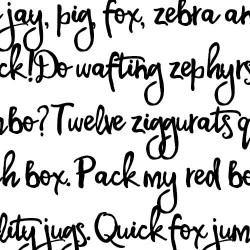 jay, pig, fox, zebra an
ck! Do wafting zephyrs
mbo? Twelve ziggurats q
h box. Pack my red bo
lity jugs. Quick fox jum